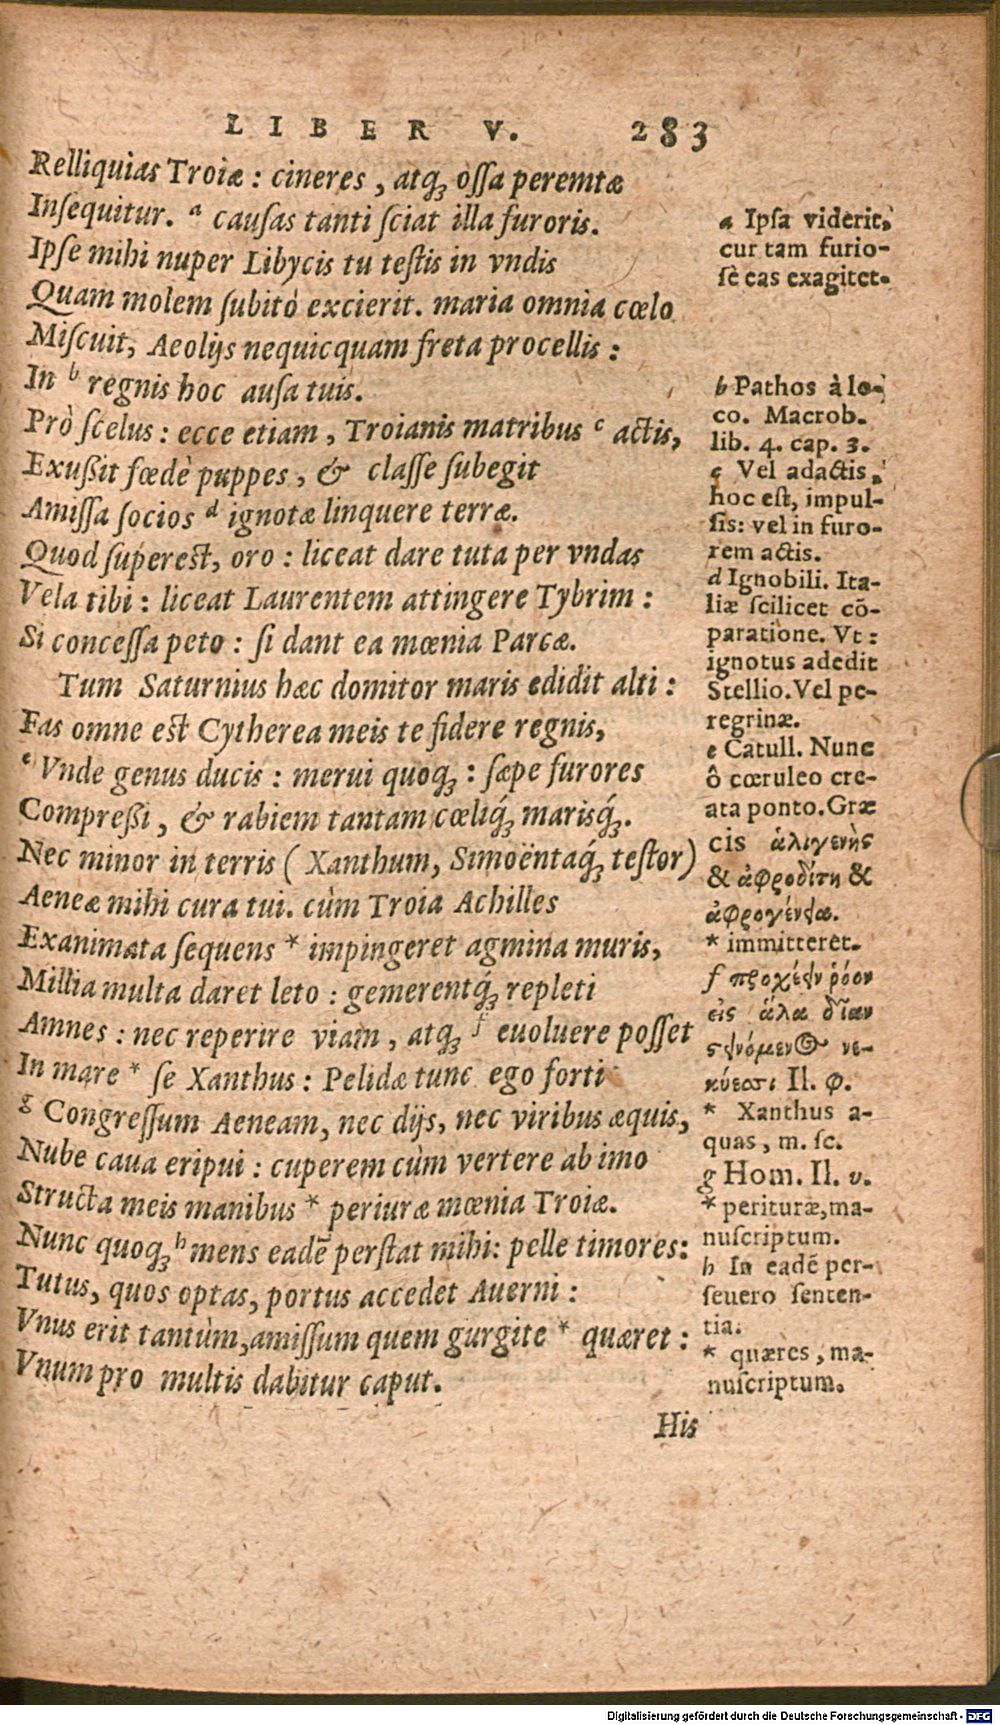 LIBER V. 283
Relliquias Troiæ : cineres , atq; ossa peremtæ
Insequitur. ᵃ causas tanti sciat illa furoris.
Ipse mihi nuper Libycis tu testis in vndis
Quam molem subitò excierit. maria omnia cœlo
Miscuit, Aeolijs nequicquam freta procellis :
In ᵇ regnis hoc ausa tuis.
Prò scelus : ecce etiam , Troianis matribus ᶜ actis,
Exußit fœdè puppes , & classe subegit
Amissa socios ᵈ ignotæ linquere terræ.
Quod superest, oro : liceat dare tuta per vndas
Vela tibi : liceat Laurentem attingere Tybrim :
Si concessa peto : si dant ea mœnia Parcæ.
Tum Saturnius hæc domitor maris edidit alti :
Fas omne est Cytherea meis te fidere regnis,
ᵉ Vnde genus ducis : merui quoq; : sæpe furores
Compreßi , & rabiem tantam cœliq́; marisq́;.
Nec minor in terris ( Xanthum, Simoëntaq́; testor)
Aeneæ mihi cura tui. cùm Troia Achilles
Exanimata sequens * impingeret agmina muris,
Millia multa daret leto : gemerentq́; repleti
Amnes : nec reperire viam , atq; ᶠ euoluere posset
In mare * se Xanthus : Pelidæ tunc ego forti
ᵍ Congressum Aeneam, nec dijs, nec viribus æquis,
Nube caua eripui : cuperem cùm vertere ab imo
Structa meis manibus * periuræ mœnia Troiæ.
Nunc quoq; ʰ mens eadē perstat mihi: pelle timores:
Tutus, quos optas, portus accedet Auerni :
Vnus erit tantùm, amissum quem gurgite * quæret :
Vnum pro multis dabitur caput.
His
a Ipsa viderit,
cur tam furio-
sè eas exagitet.
b Pathos à lo-
co. Macrob.
lib. 4. cap. 3.
c Vel adactis,
hoc est, impul-
sis: vel in furo-
rem actis.
d Ignobili. Ita-
liæ scilicet cō-
paratione. Vt :
ignotus adedit
Stellio. Vel pe-
regrinæ.
e Catull. Nunc
ô cœruleo cre-
ata ponto. Græ
cis ἁλιγενὴς
& ἀφροδίτη &
ἀφρογένεια.
* immitteret.
f προχέειν ῥόον
εἰς ἅλα δῖαν
στεινόμενος νε-
κύεσσι Il. φ.
* Xanthus a-
quas , m. sc.
g Hom. Il. υ.
* perituræ, ma-
nuscriptum.
h In eadē per-
seuero senten-
tia.
* quæres , ma-
nuscriptum.
Digitalisierung gefördert durch die Deutsche Forschungsgemeinschaft - DFG